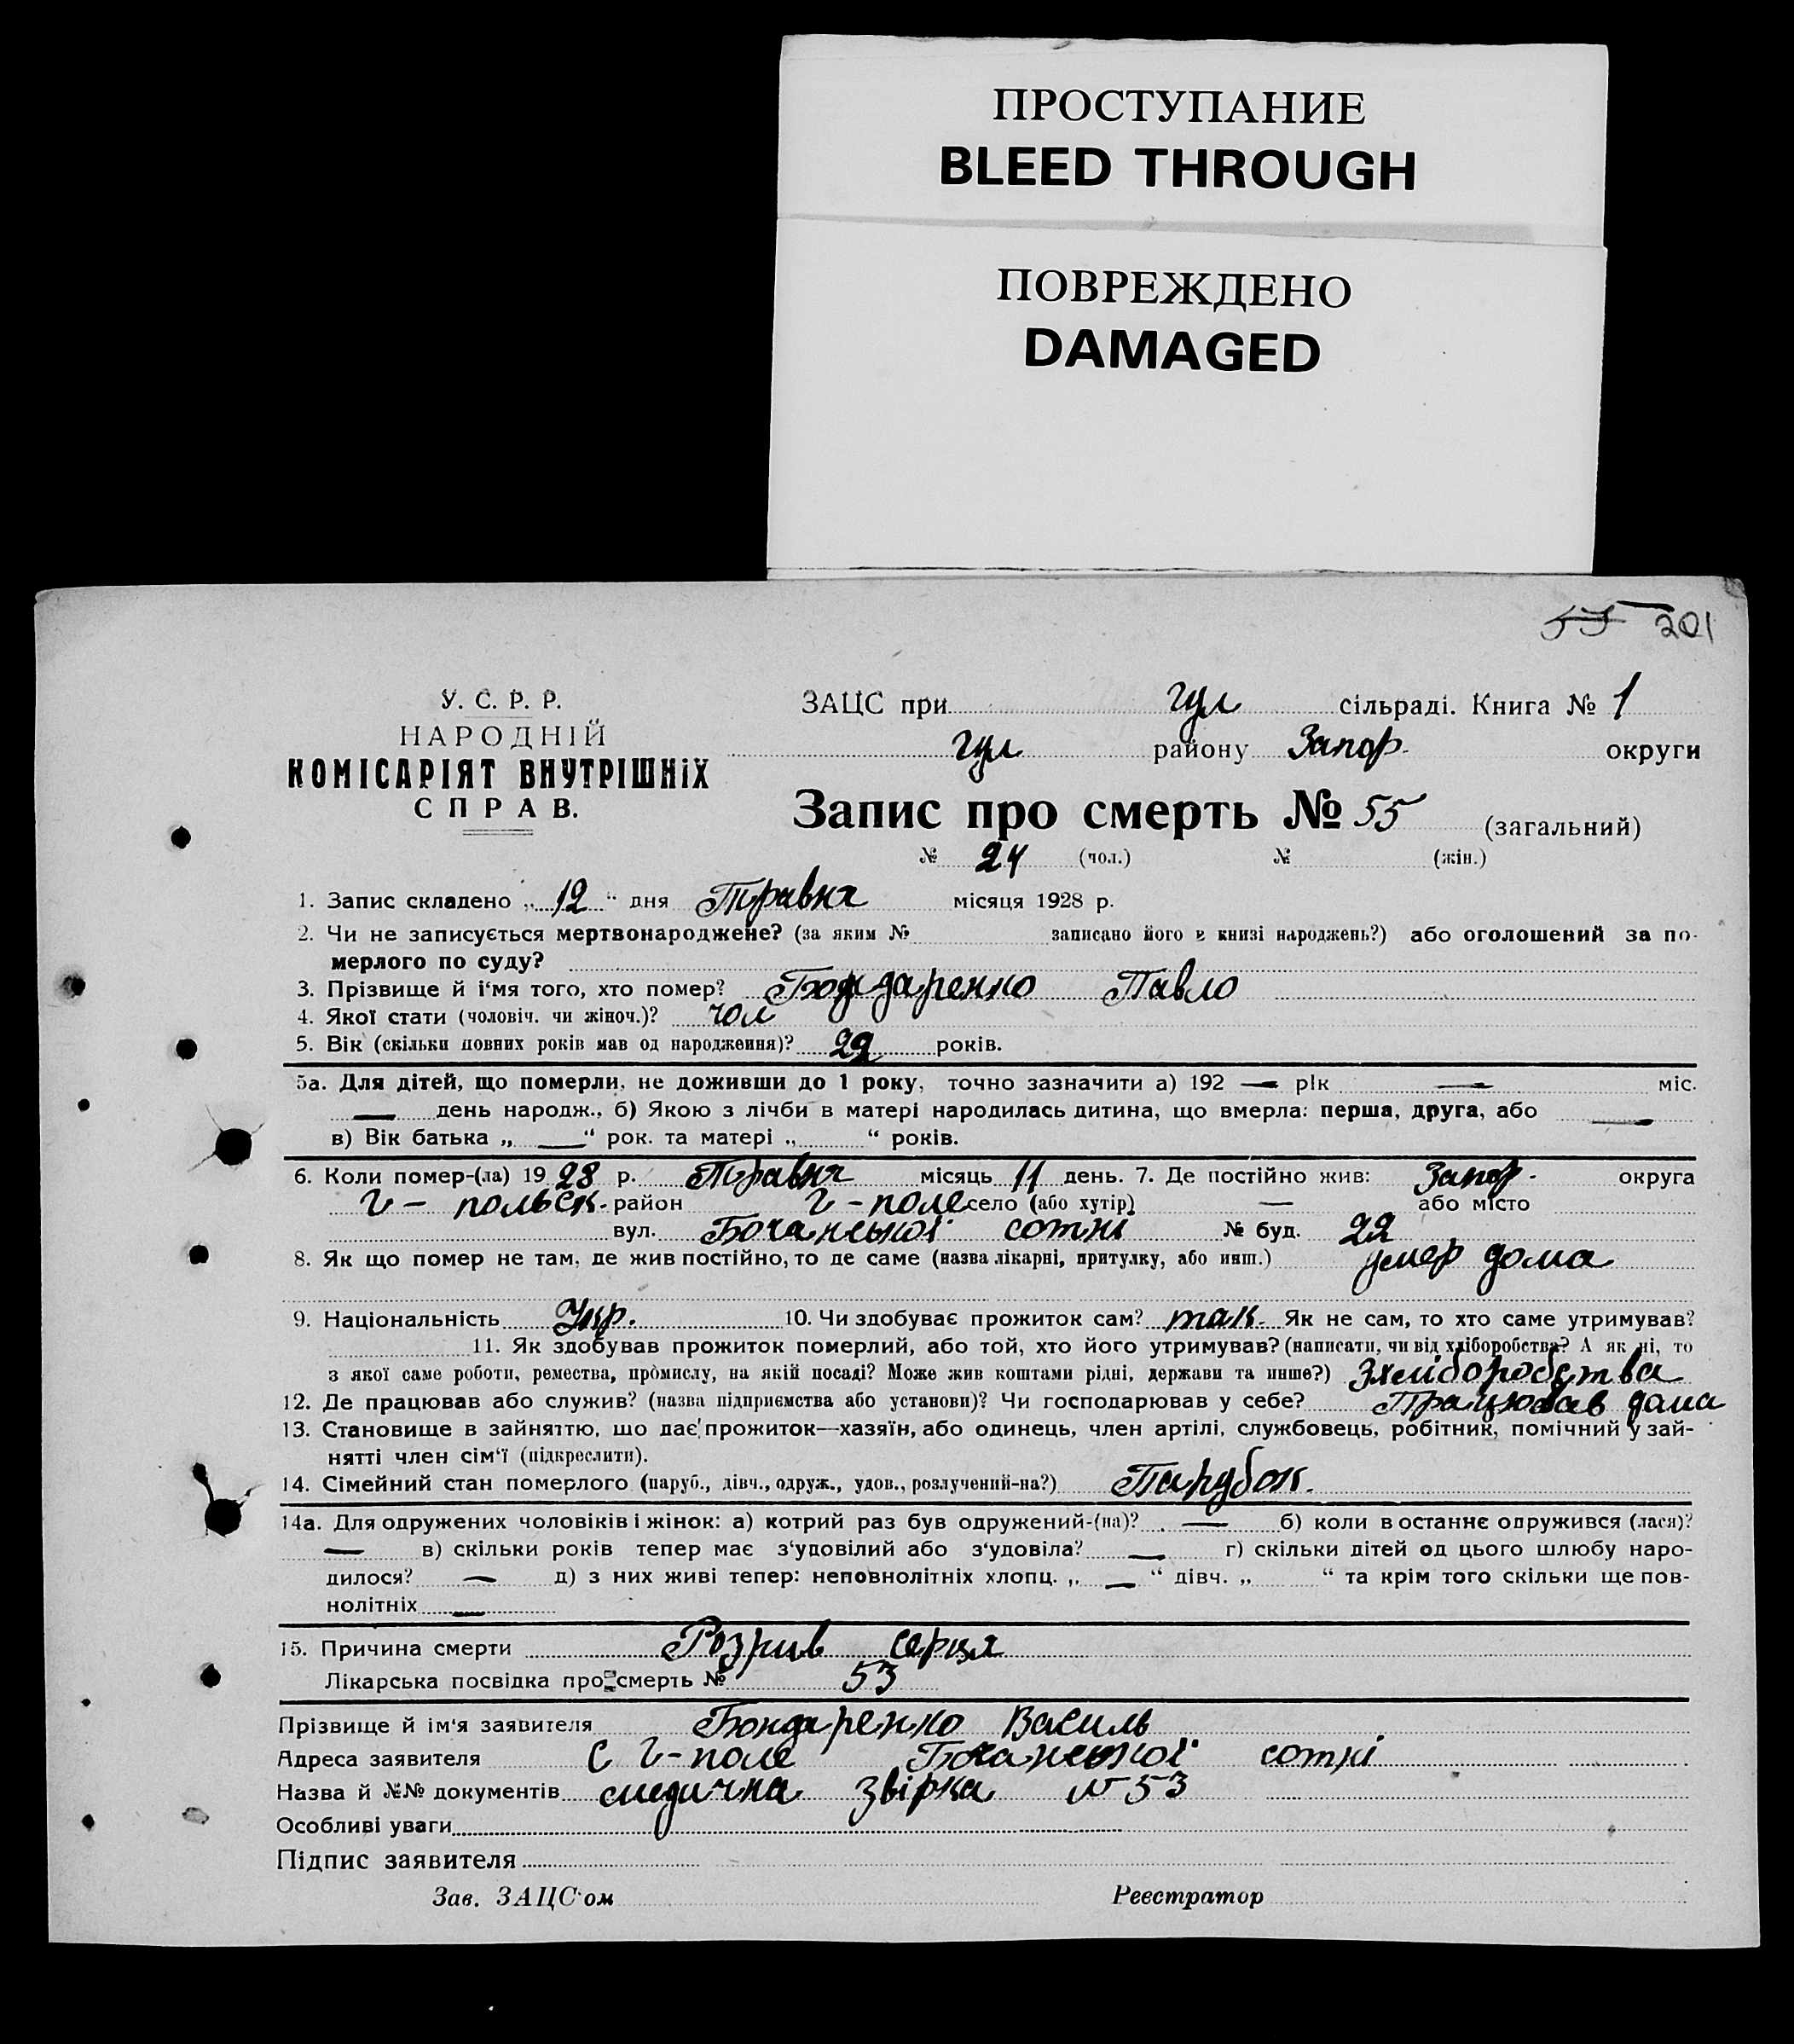 ПРОСТУПАНИЕ
BLEED THROUGH
ПОВРЕЖДЕНО
DAMAGED
55 201
У. С. Р. Р.
НАРОДНІЙ
КОМІСАРІЯТ ВНУТРІШНІХ
СПРАВ.
ЗАЦС при гул сільраді. Книга № 1
гул району Запор. округи
Запис про смерть № 55 (загальний)
№ 24 (чол.) № (жін.)
1. Запис складено „ 12 “ дня Травня місяця 1928 р.
2. Чи не записується мертвонароджене? (за яким № записано його в книзі народжень?) або оголошений за по-
мерлого по суду?
3. Прізвище й і‘мя того, хто помер? Бондаренко Павло
4. Якої стати (чоловіч. чи жіноч.)? чол
5. Вік (скільки повних років мав од народження)? 29 років.
5а. Для дітей, що померли, не доживши до 1 року, точно зазначити а) 192 — рік — міс.
— день народж., б) Якою з лічби в матері народилась дитина, що вмерла: перша, друга, або —
в) Вік батька „ — “ рок. та матері „ “ років.
6. Коли помер-(ла) 1928 р. Травня місяць 11 день. 7. Де постійно жив: Запор. округа
Г – польск. район Г – поле село (або хутір) — або місто
вул. Бочанської сотні № буд. 22
8. Як що помер не там, де жив постійно, то де саме (назва лікарні, притулку, або инш.) умер дома
9. Національність Укр. 10. Чи здобуває прожиток сам? так. Як не сам, то хто саме утримував?
11. Як здобував прожиток померлий, або той, хто його утримував? (написати, чи від хліборобства? А як ні, то
з якої саме роботи, ремества, промислу, на якій посаді? Може жив коштами рідні, держави та инше?) Зхліборобства
12. Де працював або служив? (назва підприємства або установи)? Чи господарював у себе? Працював дома
13. Становище в зайняттю, що дає прожиток—хазяїн, або одинець, член артілі, службовець, робітник, помічний у зай-
нятті член сім‘ї (підкреслити).
14. Сімейний стан померлого (паруб., дівч., одруж., удов., розлучений-на?) Парубок.
14а. Для одружених чоловіків і жінок: а) котрий раз був одружений-(на)? — б) коли в останнє одружився (лася)?
— в) скільки років тепер має з‘удовілий або з‘удовіла? — г) скільки дітей од цього шлюбу наро-
дилося? — д) з них живі тепер: неповнолітніх хлопц. „ — “ дівч. „ “ та крім того скільки ще пов-
нолітніх —
15. Причина смерти Розрив серця
Лікарська посвідка про смерть № 53
Прізвище й ім‘я заявителя Бондаренко Василь
Адреса заявителя С Г-поле Бочанської сотні
Назва й №№ документів медична звірка № 53
Особливі уваги
Підпис заявителя
Зав. ЗАЦС‘ом Реєстратор